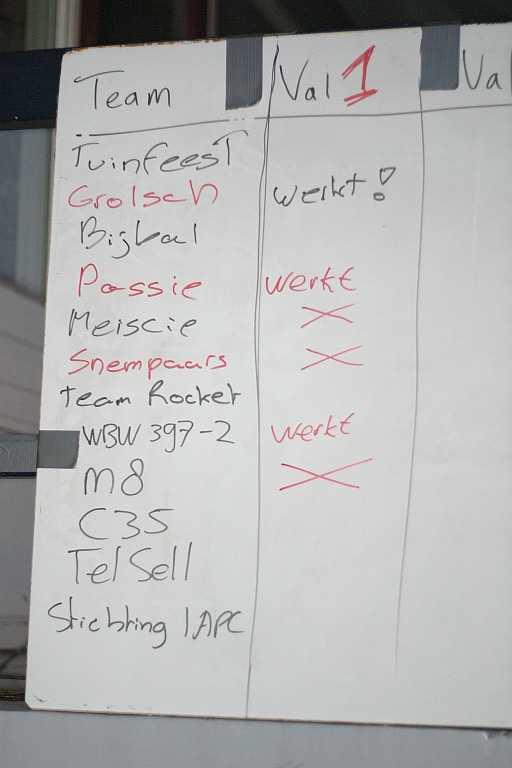 Team Val 1 Va
TuinfeesT
Grolsch werkt!
Bigbal
Passie werkt
Meiscie X
Snempaars X
team Rocket
WBW 397-2 werkt
M8 X
C35
TelSell
Stichting IAPC